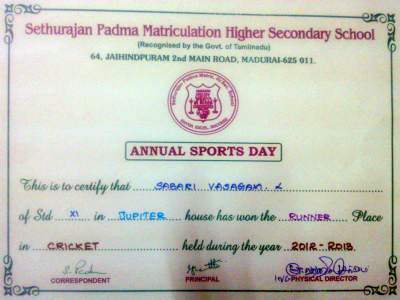 Sethurajan Padma Matriculation Higher Secondary School
(Recognised by the Govt. of Tamilnadu)
64, JAIHINDPURAM 2nd MAIN ROAD, MADURAI-625 011.
ANNUAL SPORTS DAY
This is to certify that SABARI VASAGAM. L
of Std XI in JUPITER house has won the RUNNER Place
in CRICKET held during the year 2012-2013
CORRESPONDENT PRINCIPAL PHYSICAL DIRECTOR